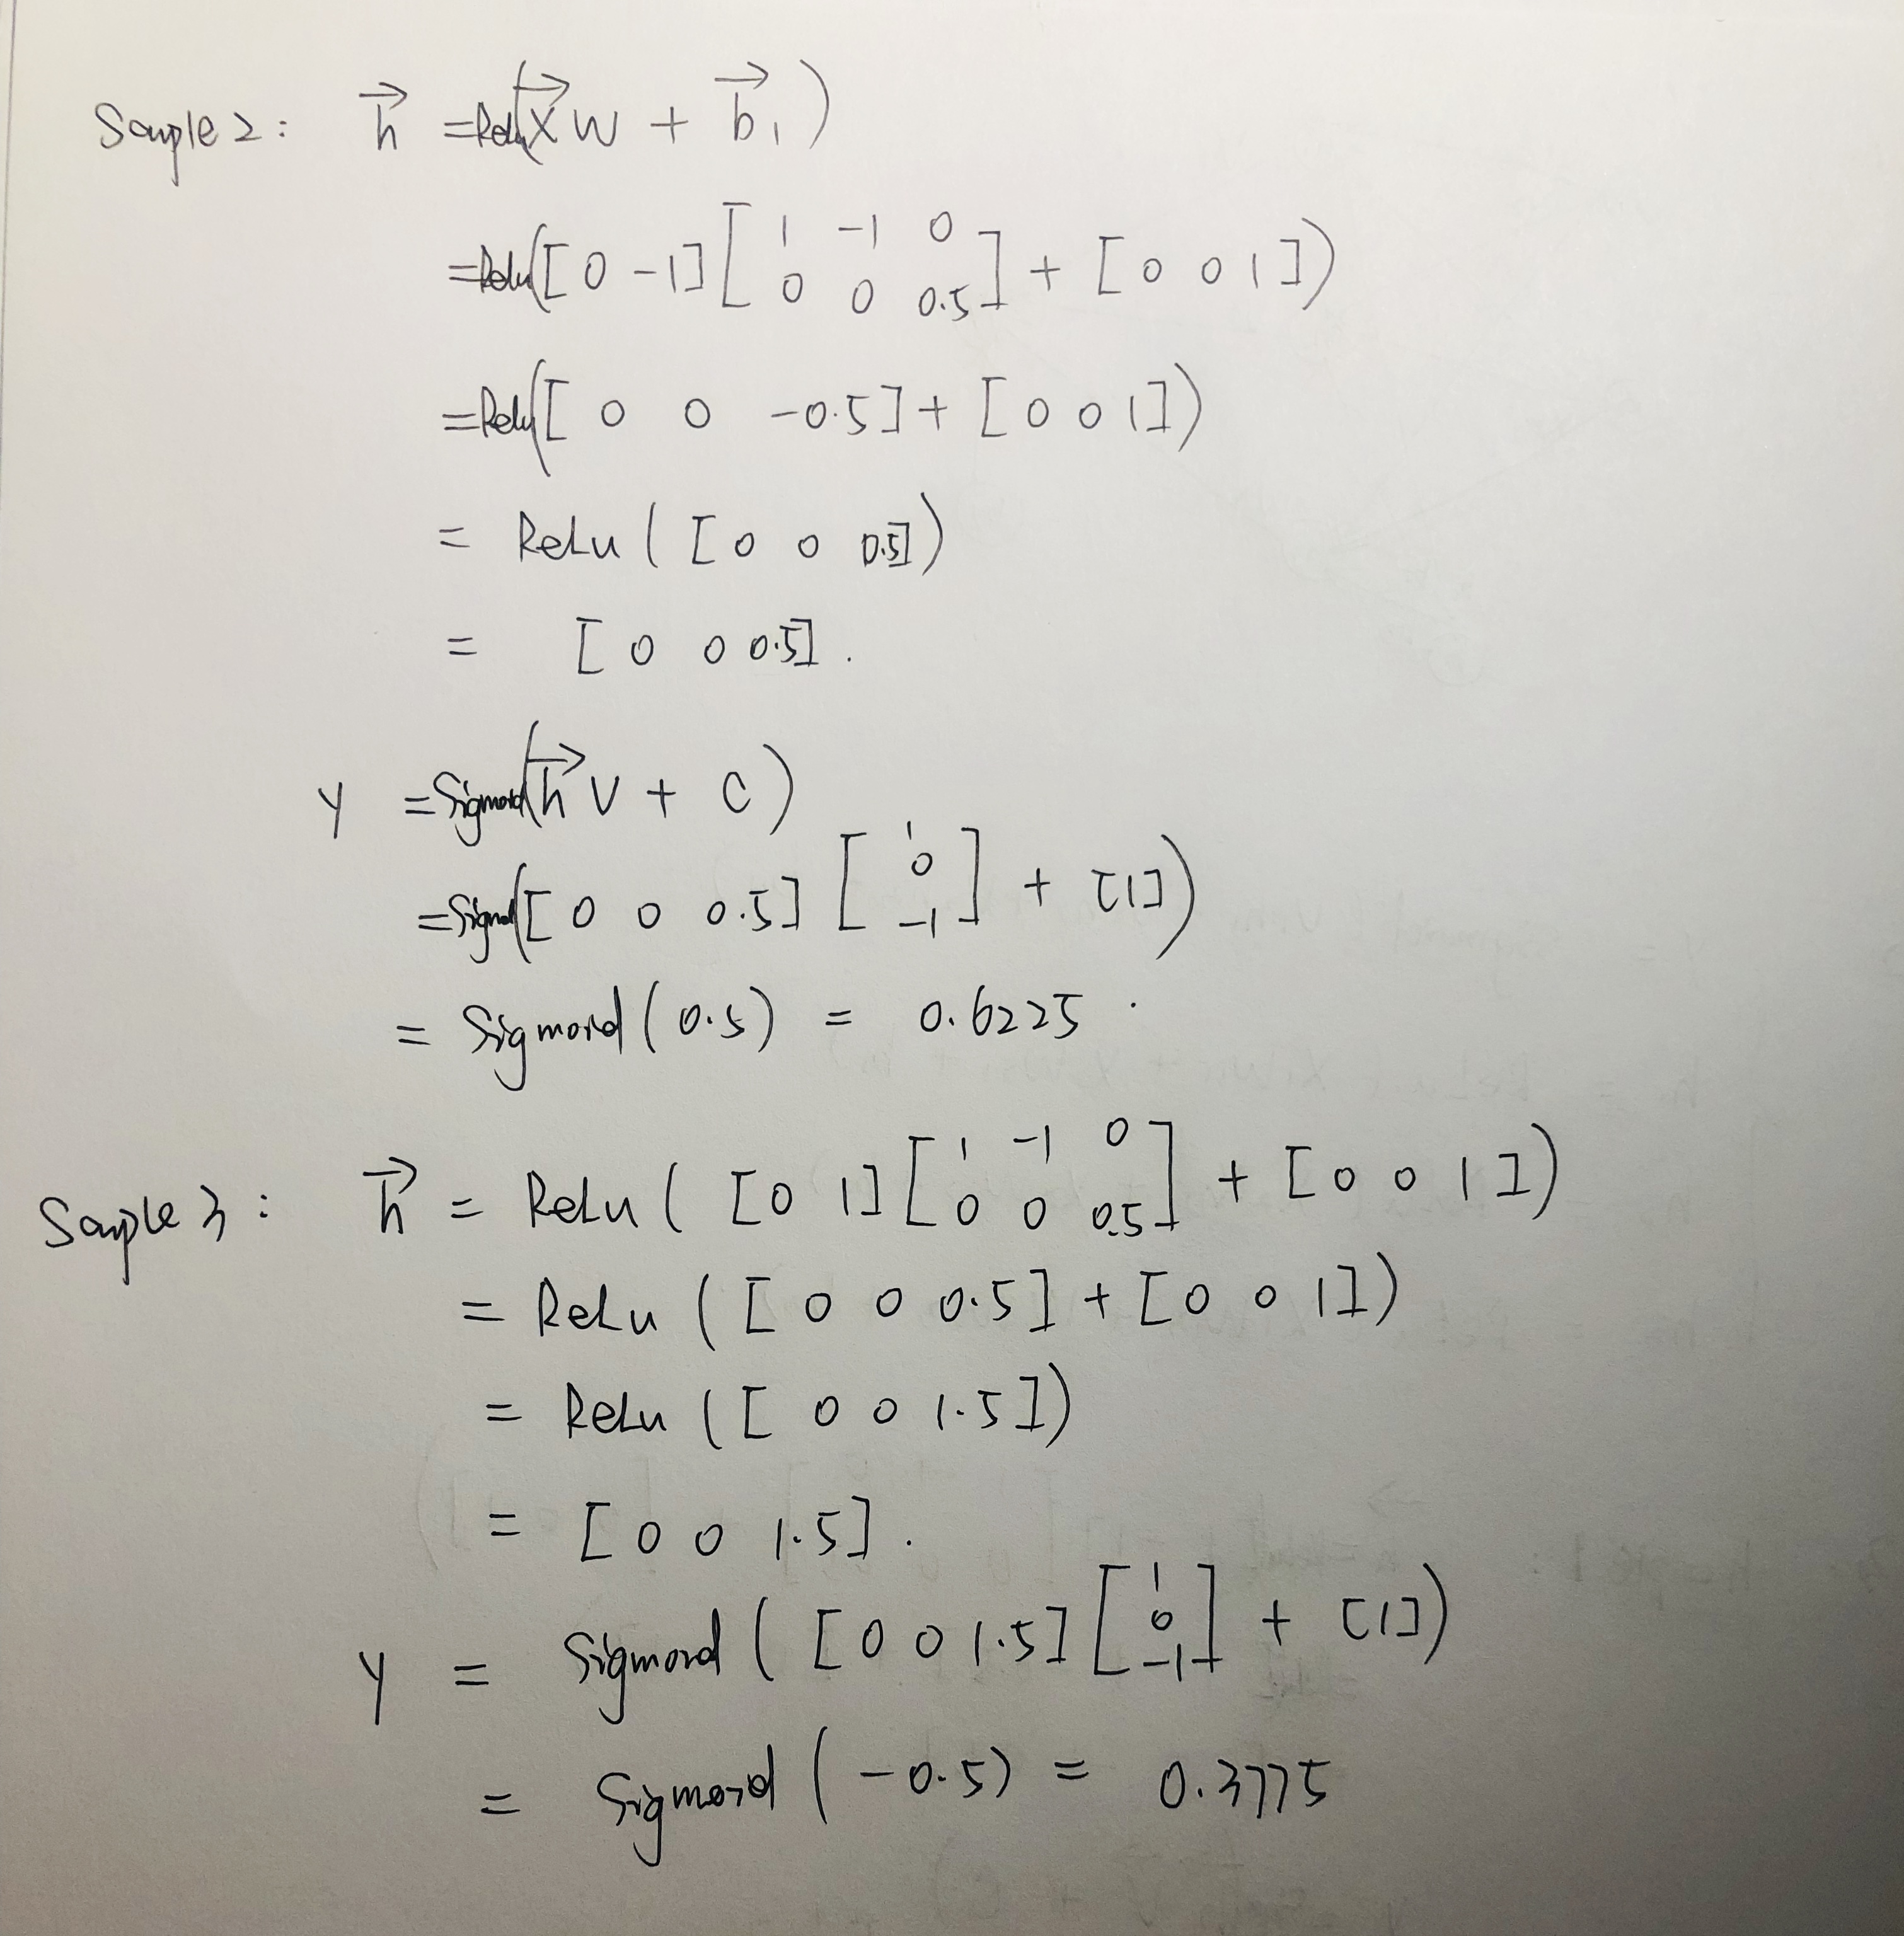 Sample 2: h⃗ = Relu(x⃗ W + b⃗₁)
= Relu([0 -1] [1 -1 0; 0 0 0.5] + [0 0 1])
= Relu([0 0 -0.5] + [0 0 1])
= ReLu([0 0 0.5])
= [0 0 0.5].
y = Sigmoid(h⃗ V + C)
= Sigmoid([0 0 0.5] [1; 0; -1] + [1])
= Sigmoid(0.5) = 0.6225.
Sample 3: h⃗ = ReLu([0 1] [1 -1 0; 0 0 0.5] + [0 0 1])
= ReLu([0 0 0.5] + [0 0 1])
= ReLu([0 0 1.5])
= [0 0 1.5].
y = Sigmoid([0 0 1.5] [1; 0; -1] + [1])
= Sigmoid(-0.5) = 0.3775